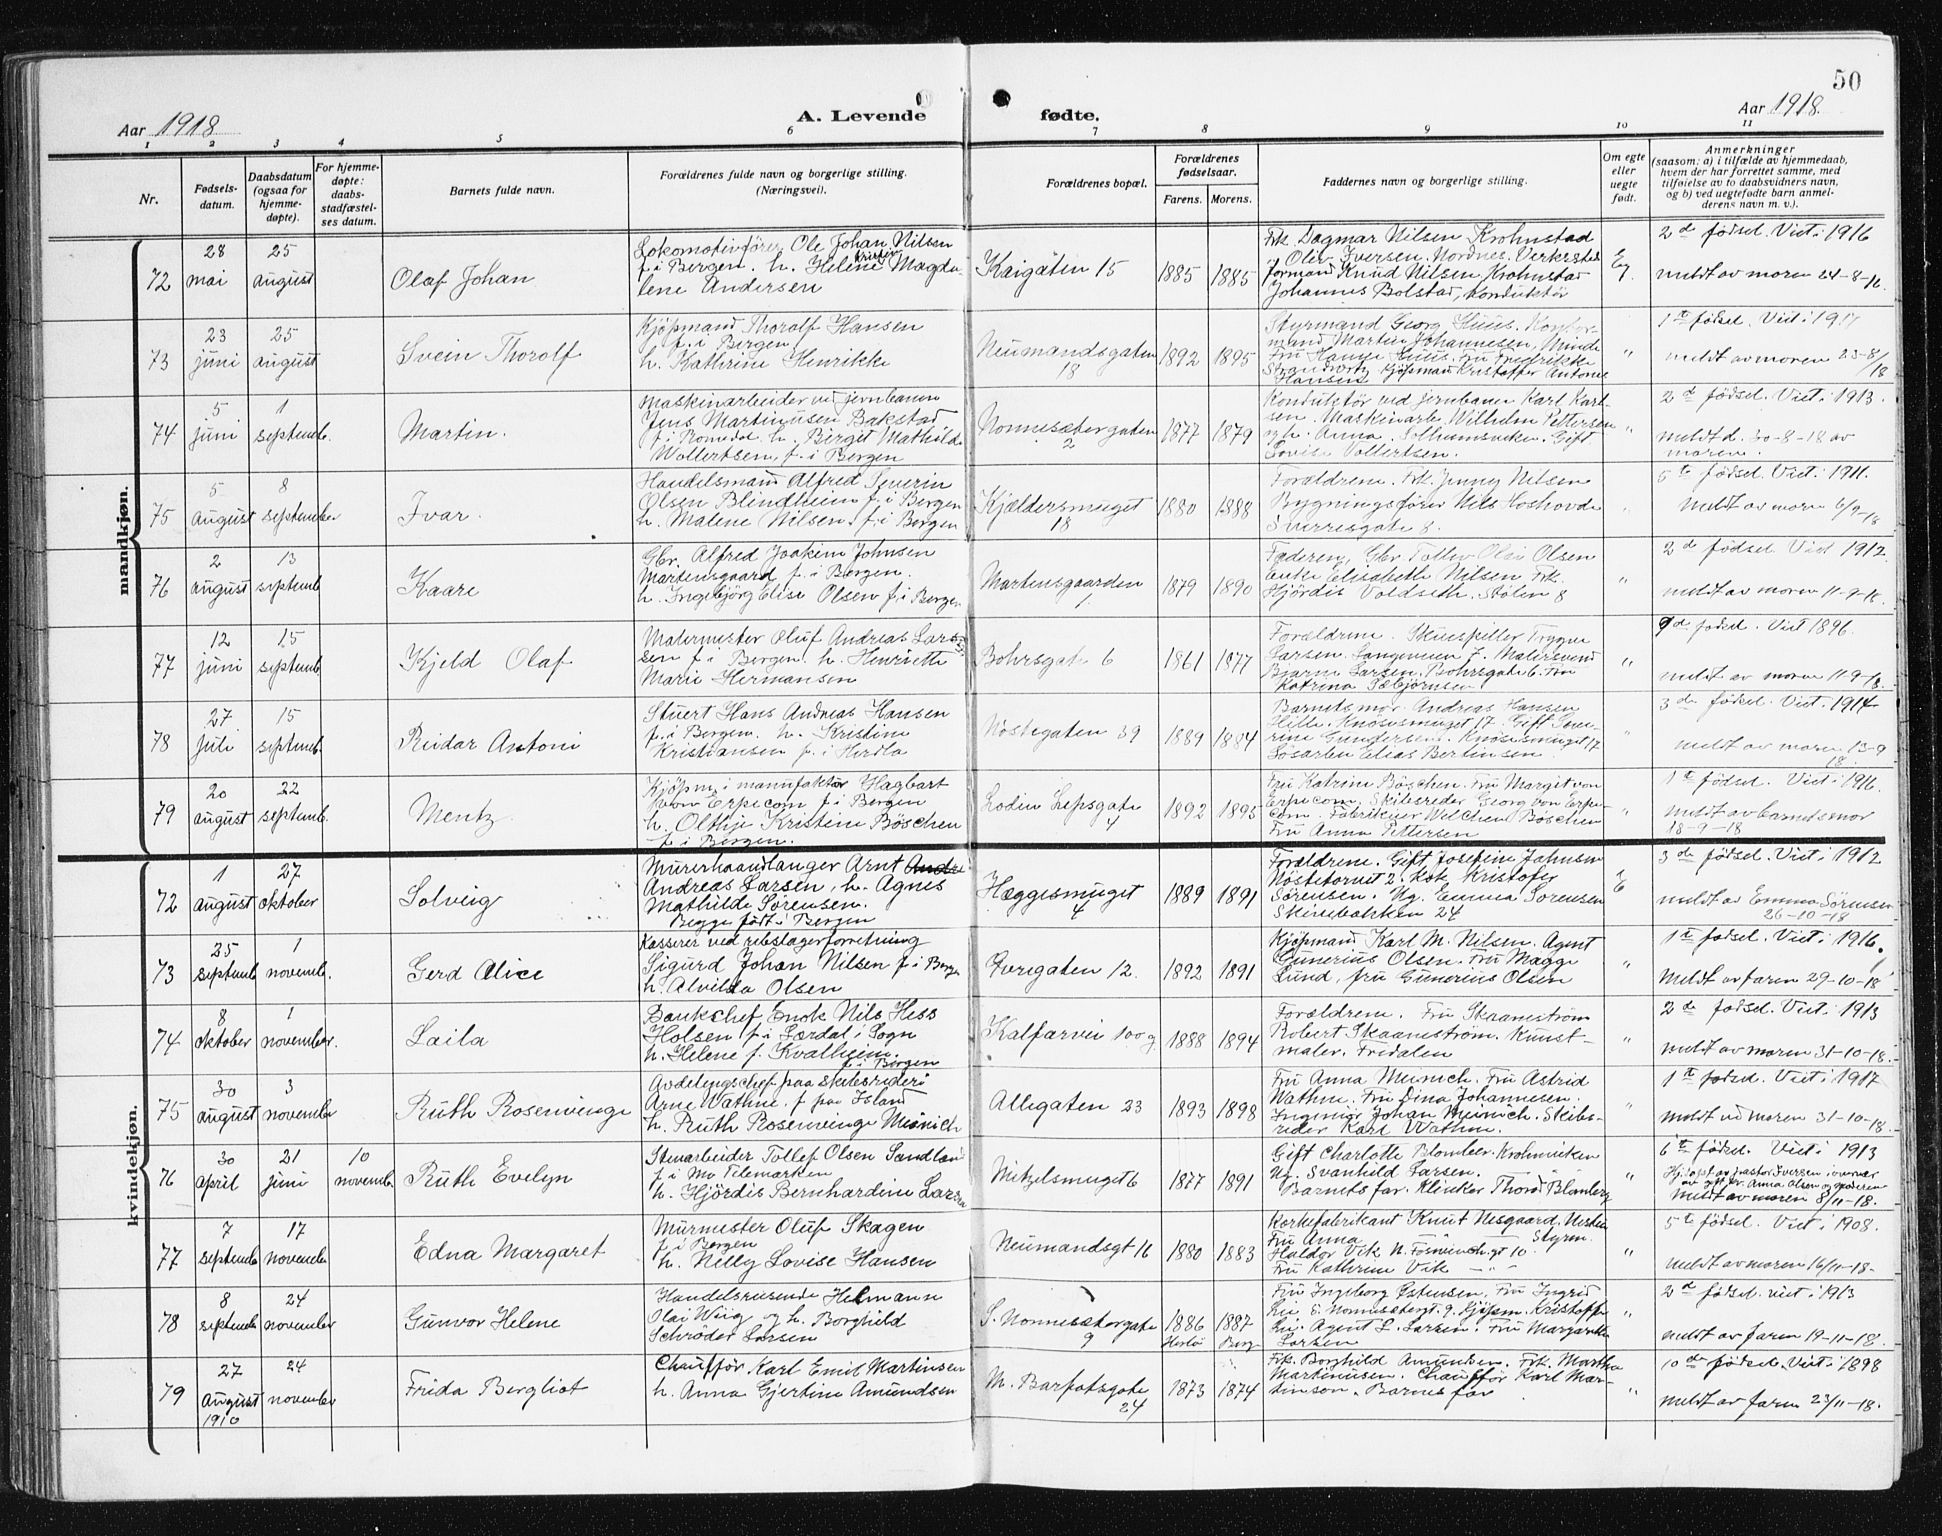 50
Aar 1918
A. Levende fødte.
Aar 1918.
1 2 3 4 5 6 7 8 9 10 11
Nr.
Fødsels-
datum.
Daabsdatum
(ogsaa for
hjemme-
døpte).
For hjemme-
døpte:
daabs-
stadfæstel-
ses datum.
Barnets fulde navn.
Forældrenes fulde navn og borgerlige stilling.
(Næringsvei).
Forældrenes bopæl.
Forældrenes
fødselsaar.
Farens. Morens.
Faddernes navn og borgerlige stilling.
Om egte
eller
uegte
født.
Anmerkninger
(saasom: a) i tilfælde av hjemmedaab,
hvem der har forrettet samme, med
tilføielse av to daabsvidners navn,
og b) ved uegtefødte barn anmel-
derens navn m. v.).
mandkjøn.
72
28
mai
25
august
Olaf Johan
Lokomotivfører Ole Johan Nilsen
f. i Bergen. h. Helene Magda
lene Andersen
Kaigaten 15
1885
1885
Frk. Dagmar Nilsen Krohnstad
Oliv Iversen, Nordnes. Verksted
formand Knud Nilsen, Krohnstad
Johannes Bolstad, Konduktør
2de fødsel. Viet i 1916
meldt av moren 24-8-18.
73
23
juni
25
august
Svein Thorolf
Kjøpmand Thorolf Hansen
f. i Bergen
h. Kathrine Henrikke
Neumandsgaten
18
1892
1895
Styrmand Georg Huus. Kontor-
mand Martin Johannesen, Minde
Fru Hanna Huus. Fru Fredrikke
Kjøpmand Kristoffer Antonie
Hansen
"
1te fødsel. Viet i 1917
meldt av moren 23-8/
18
74
5
juni
1
septemb.
Martin.
Maskinarbeider ved jernbanen
Jens Martinusen Bakstad
f. i Romedal h. Berget Mathilde
Wollertsen, f. i Bergen
Nonnesætergaten
2
1877
1879
Konduktør ved jernbanen Karl Karl-
sen. Maskinarb. Wilhelm Pettersen
og h. Anna. Solheimsviken. Gift
Lovise Vollertsen.
"
2de fødsel. Viet i 1913.
meldt d. 30-8-18 av
moren.
75
5
august
8
september
Ivar.
Handelsmand Alfred Severin
Olsen Blindheim f. i Bergen
h. Malene Nilsen, f. i Bergen
Kjældersmuget
18
1880
1888
Forældrene. Frk. Jenny Nilsen
Bygningsfører Nils Hoshovde
Sverresgate 8.
"
5te fødsel. Viet i 1911.
Meldt av moren 6/9-18
76
2
august
13
septemb
Kaare
Gbr. Alfred Joakim Johnsen
Martensgaard f. i Bergen.
h. Ingebjørg Elise Olsen f. i Bergen
Martensgaarden
1.
1879
1890
Faderen, Gbr. Tollev Olai Olsen
Enke Elisabeth Nilsen Frk.
Hjørdis Voldseth. Stølen 8
"
2de fødsel. Viet 1912.
meldt av moren 11-9-18.
77
12
juni
15
septemb
Kjeld Olaf
Malermester Oluf Andreas Lars-
sen f. i Bergen. h. Henriette
Marie Hermansen
Bohrsgate 6
1861
1877
Forældrene. Skuespiller Trygve
Larsen. Langeveien 7. Malersvend
Bjarne Larsen, Bohrsgate 6. Fru
Katrina Sæbjørnsen
"
9de fødsel. Viet 1896.
meldt av moren 11-9-18.
78
27
juli
15
septemb.
Reidar Antoni
Stuert Hans Andreas Hansen
f. i Bergen. h. Kristine
Kristiansen f. i Herdla
Nøstegaten 39
1889
1884
Barnets mor. Andreas Hansen
Hille. Knøsesmuget 17. Gift Seve-
rine Gundersen. Knøsesmuget 17
Løsarb. Elias Bertinsen.
"
3de fødsel. Viet. 1914
meldt av moren 13-9
18.
79
20
august
22
septemb.
Mentz.
Kjøpm. i manufaktur Hagbart
von Erpecom f. i Bergen
h. Olthje Kristine Bøschen
f. i Bergen.
Lodin Lepsgate
4
1892
1895
Fru Katrine Bøschen. Fru Margit von
Erpecom. Skibsreder Georg von Erpe-
com. Fabrikeier Welchen Bøschen
Fru Anna Pettersen
"
1te fødsel. Viet i 1916.
meldt av barnets mor
18-9-18
kvindekjøn.
72
1
august
27
oktober
Solveig
Murerhaandlanger Arnt
Andreas Larsen, h. Agnes
Mathilde Sørensen.
Begge født i Bergen
Hæggesmuget
4
1889
1891
Forældrene. Gift Josefine Johnsen
Nøstetorvet 2. Kok Kristofer
Sørensen. Ug. Emma Sørensen
Skivebakken 24
E
3de fødsel. Viet i 1912
meldt av Emma Sørensen
26-10-18
73
25
septemb
1
novemb.
Gerd Alice
Kasserer ved rebslagerforretning
Sigurd Johan Nilsen f. i Bergen
h. Alvilda Olsen
Øvregaten 12.
1892
1891
Kjøpmand Karl M. Nilsen. Agent
Gunerius Olsen. Fru Magge
Lund, fru Gunerius Olsen
"
1te fødsel. Viet i 1916.
Meldt av faren 29-10-18
74
8
oktober
1
november.
Laila
Bankchef Enok Nils Hess
Holsen f. i Lærdal i Sogn
h. Helene f. Kvalheim.
f. i Bergen
Kalfarvei 100 g.
1888
1894
Forældrene. Fru Skramstrøm
Robert Skaanestrøm. Kunst-
maler. Fridalen
"
2de fødsel. Viet i 1913
meldt av moren 31-10-18.
75
30
august
3
november
Ruth Rosenvinge
Avdelingschef paa skibsrederi
Arne Wathne. f. paa Island
h. Ruth Rosenvinge Meinich
Allegaten 23
1893
1898
Fru Anna Meinich. Fru Astrid
Wathne. Fru Dina Johannesen.
Ingeniør Johan Meinich. Skibs-
reder Karl Wathne.
"
1te fødsel. Viet i 1917
meldt ved moren 31-10-18.
76
30
april
21
juni
10
novemb.
Ruth Evelyn
Stenarbeider Tollef Olsen Sandland
f. i Mo Telemarken
h. Hjørdis Bernhardine Larsen
Nitzelsmuget 6
1877
1891
Gift Charlotte Blomberg. Krohnviken
Ug. Svanhild Larsen.
Barnets far. Klinker Thorvd Blomberg
"
6te fødsel. Viet i 1913
Hj.døpt av pastor Iversen i overvær
av gift fr. Anna Olsen og moderen
Meldt av moren 8/11-18.
77
7
septemb
17
novemb
Edna Margaret
Murmester Oluf Skagen
f. i Bergen
h. Nelly Lovise Hansen
Neumandsgt 16
1880
1883
Korkefabrikant Knut Nesgaard, Nesttun
Fru Anna Styrm.
Haldor Vik N. Fosvinckelsgt 10.
Fru Kathrine Vik
"
5te fødsel. Viet i 1908.
meldt av moren 16/11-18.
78
8
septemb
24
november
Gunvor Helene
Handelsreisende Hermann
Olai Wiig og h. Borghild
Schrøder Larsen
S. Nonnesætergate
9
1886
Herlø
1887
Berg.
Fru Ingeborg Østensen. Fru Ingrid
Lie S. Nonnesætergt 9. Kjøpm. Kristoffer
Lie. Agent L. Larsen. Fru Margaretha
Larsen
"
2de fødsel. viet i 1913
meldt av faren 19-11-18.
79
27
august
1910
24
november
Frida Bergliot
Chauffør Karl Emil Martinsen
h. Anna Gjertine Amundsen
M. Barfotsgate
24
1873
1874
Frk. Borghild Amundsen. Frk. Martha
Martinusen. Chauffør Karl Mar-
tinson. Barnets far
"
10de fødsel. Viet i 1898
meldt av faren 23/11-18.